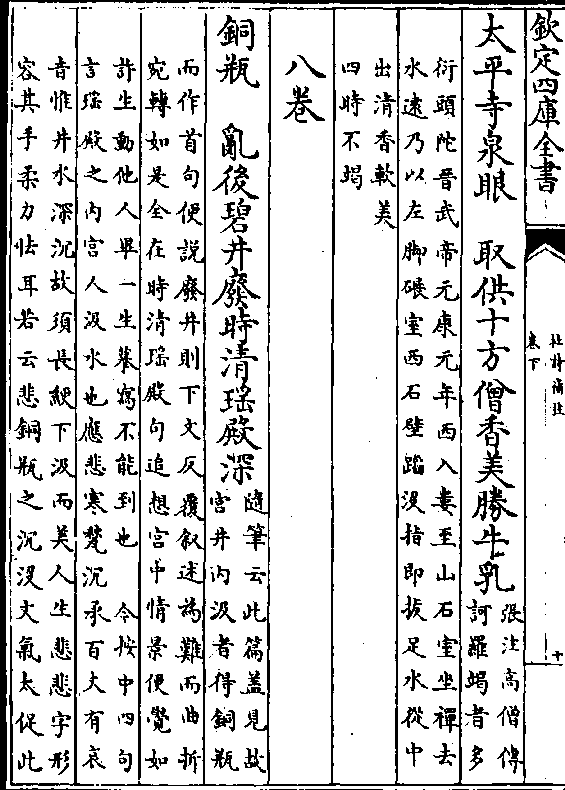 欽定四庫全書
杜詩攟
卷下
十
太平寺泉眼　取供十方僧香美勝牛乳
張注高僧傳
訶羅竭者多
衍頭陀晉武帝元康元年西入婁至山石室坐禪去
水遠乃以左脚碾室西石壁蹈没指即拔足水從中
出清香軟美
四時不竭
八卷
銅瓶　亂後碧井廢時清瑶殿深
隨筆云此篇蓋見故
宫井内汲者得銅瓶
而作首句便説廢井則下文反覆叙述為難而曲折
宛轉如是全在時清瑶殿句追想宫中情景便覺如
許生動他人畢一生摹寫不能到也　今按中四句
言瑶殿之内宫人汲水也應悲寒甃沉承百丈有哀
音惟井水深沉故須長綆下汲而美人生悲悲字形
容其手柔力怯耳若云悲銅瓶之沉没文氣太促此